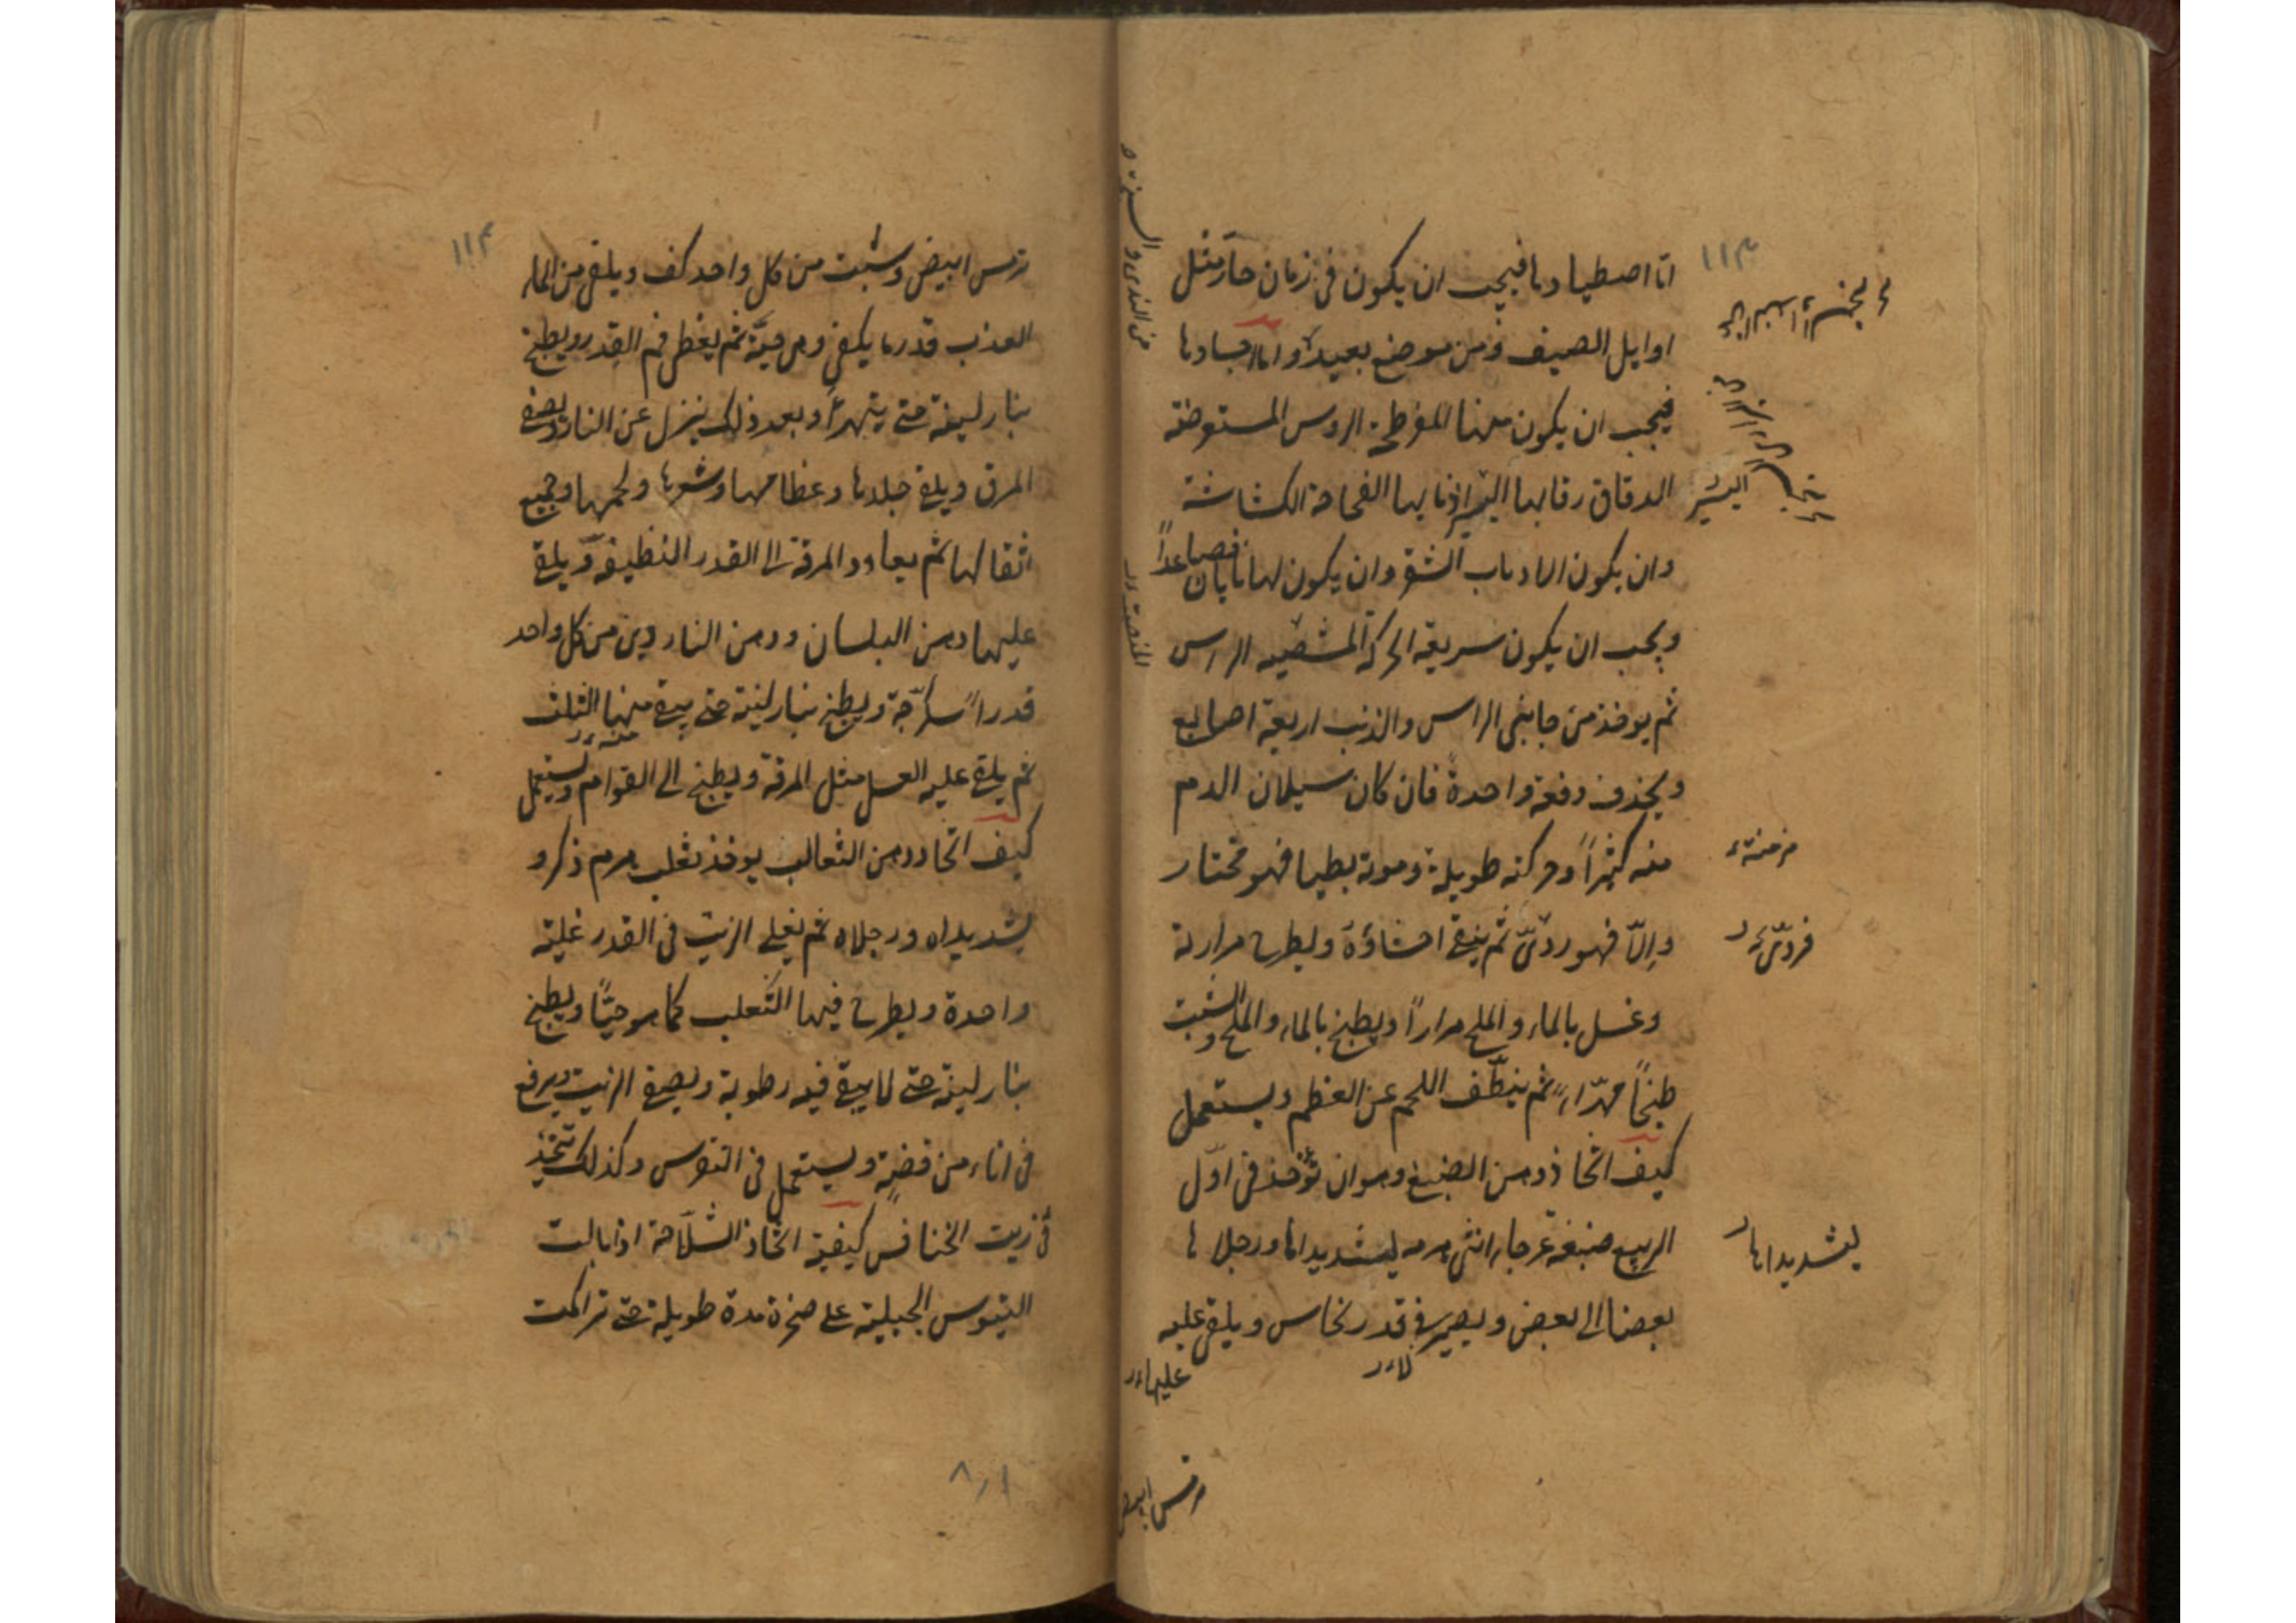 ١١٣
اما اصطيادها فيجب ان يكون فى زمان حار مثل
اوايل الصيف ومن موضع بعيد واما اجسادها
فيجب ان يكون منها المفرطحة الروس المستعرضة
الدقاق رقابها البتر اذنابها الفحاحة الكشاشة
وان يكون الارباب الشقر وان يكون لها نابان فصاعداً
ويجب ان يكون سريعة الحركة الراس
ثم يوخذ من جانبى الراس والذنب اربعة اصابع
ويحذف دفعة واحدة فان كان سيلان الدم
منه كثيراً وحركته طويلة وموته بطيا فهو مختار
والّا فهو ردىّ ثم ينقى احشاؤه ويطرح مرارته
وغسل بالماء والملح مراراً ويطبخ بالماء والملح والشبت
طبخاً مهرّاءً ثم ينظّف اللحم عن العظم ويستعمل
كيف اتخاذ دهن الضبع وهو ان تؤخذ فى اوّل
الربيع ضبعة عرجاء انثى هرمه ليشد يداها ورجلاها
بعضها الى بعض ويصير فى قدر نحاس ويلقى عليه
مزمنة
فردىّ
ليشد يداها
عليها
ترمس ابيض
١١٤
ترمس ابيض وشبت من كل واحد كف ويلقى من الماء
العذب قدر ما يكفى وهى حيّة ثم يغطى فم القدر ويطبخ
بنار لينة حتى يتهرّأ وبعد ذلك ينزل عن النار ويصفى
المرق ويلقى جلدها وعظامها وشعرها ولحمها وجميع
اثقالها ثم يعاود المرقة الى القدر النظيفة ويلقى
عليها دهن البلسان ودهن الناردين من كل واحد
قدر اسكرّجة ويطبخ بنار لينة حتى يبقى منها الثلث
ثم يلقى عليه العسل مثل المرقة ويطبخ الى القوام ويستعمل
كيف اتخاذ دهن الثعالب يوخذ ثعلب هرم ذكر و
يشد يداه ورجلاه ثم يغلى الزيت فى القدر غلية
واحدة ويطرح فيها الثعلب كما هو حيّاً ويطبخ
بنار لينة حتى لا يبقى فيه رطوبة ويصفى الزيت ويرفع
فى اناء من فضة ويستعمل فى النقرس وكذلك تتخذ
فى زيت الخنافس كيفية اتخاذ الشلّاحة اذا بالت
التيوس الجبلية على صخرة مدة طويلة حتى تراكمت